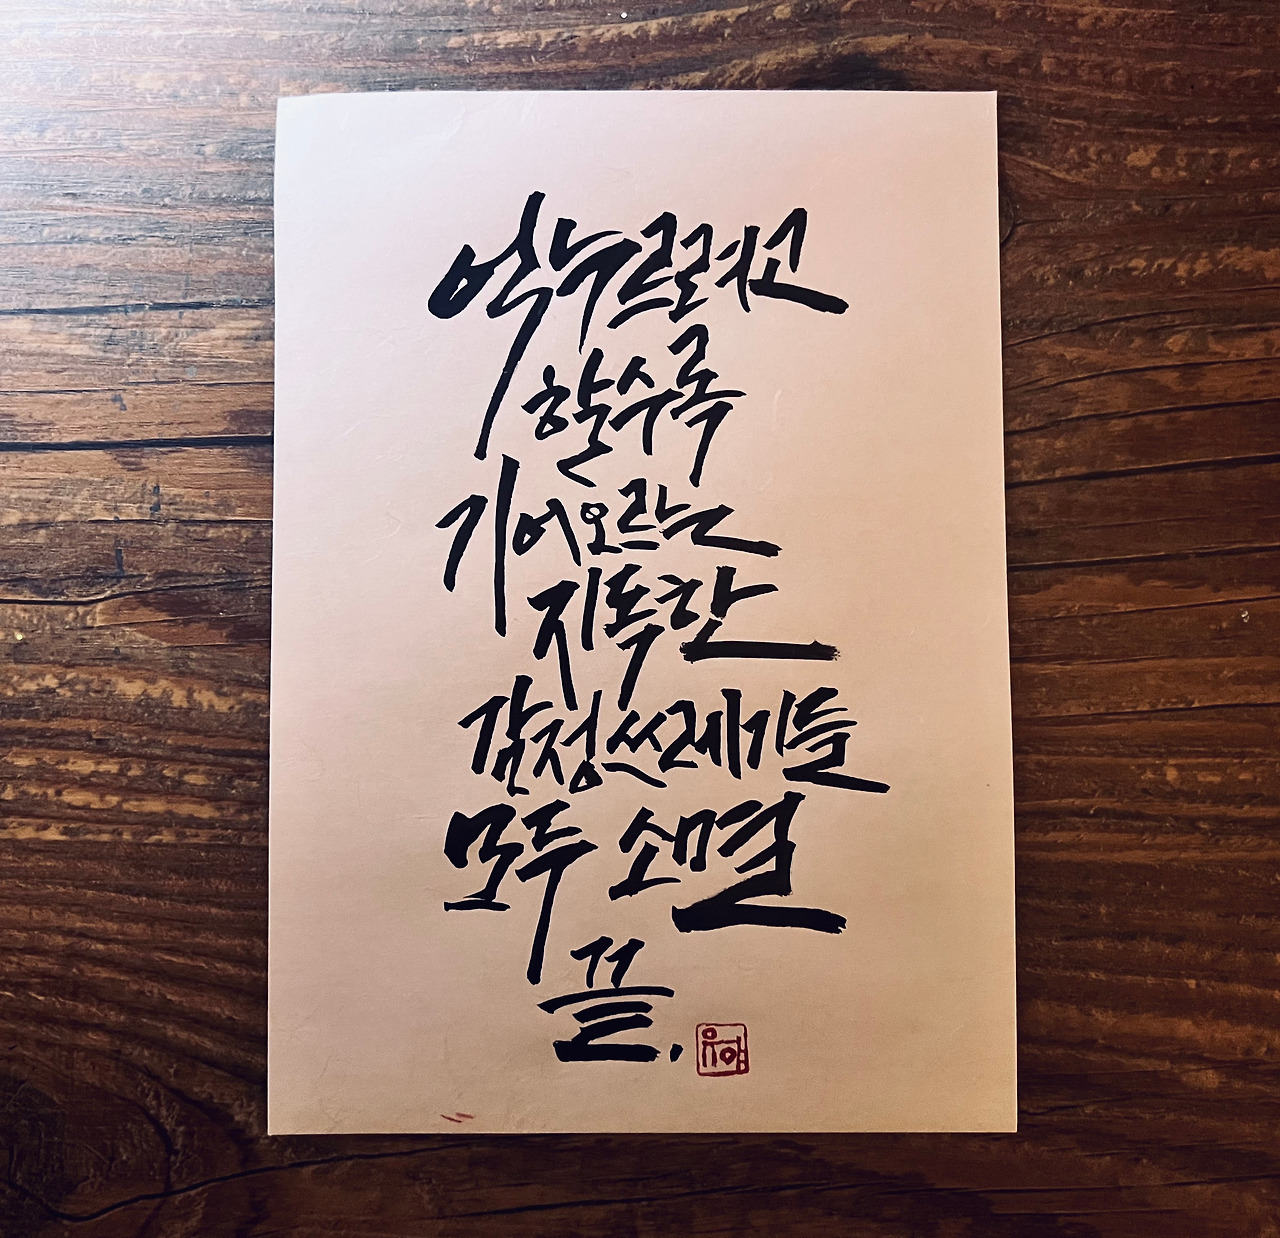 억누르려고
할수록
기어오르는
지독한
감정쓰레기들
모두 소멸
끝.